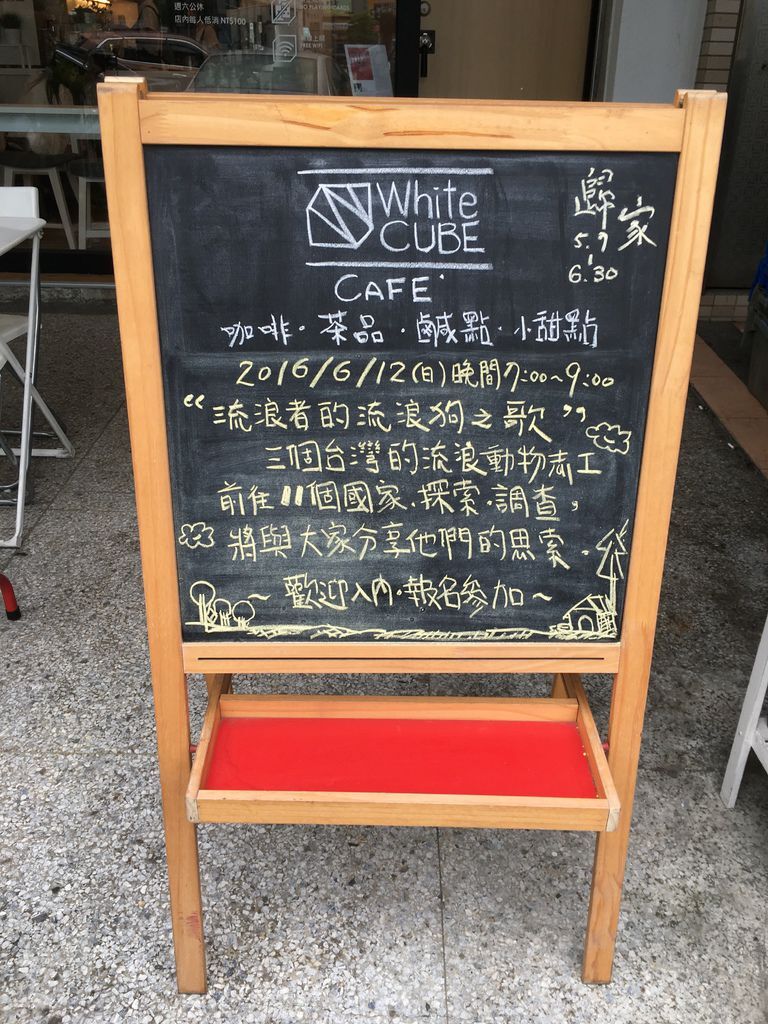 週六公休
店內每人低消 NT$100
FREE WIFI
White
CUBE
CAFE
歸家
5.7
6.30
咖啡·茶品·鹹點·小甜點
2016/6/12(日)晚間7:00~9:00
“流浪者的流浪狗之歌”
三個台灣的流浪動物志工
前往11個國家.探索.調查,
將與大家分享他們的思索.
~歡迎入內·報名參加~